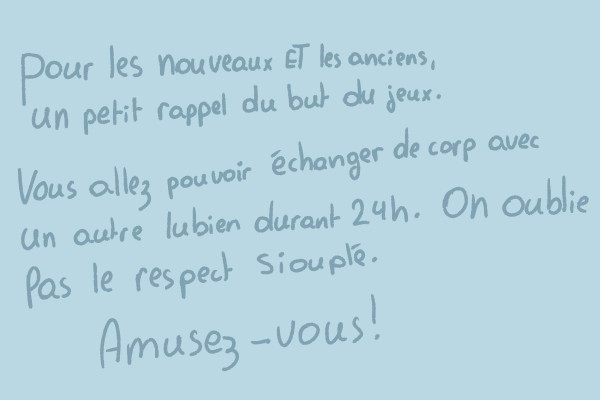 Pour les nouveaux ET les anciens,
un petit rappel du but du jeux.
Vous allez pouvoir échanger de corp avec
un autre lubien durant 24h. On oublie
Pas le respect siouplé.
Amusez-vous!